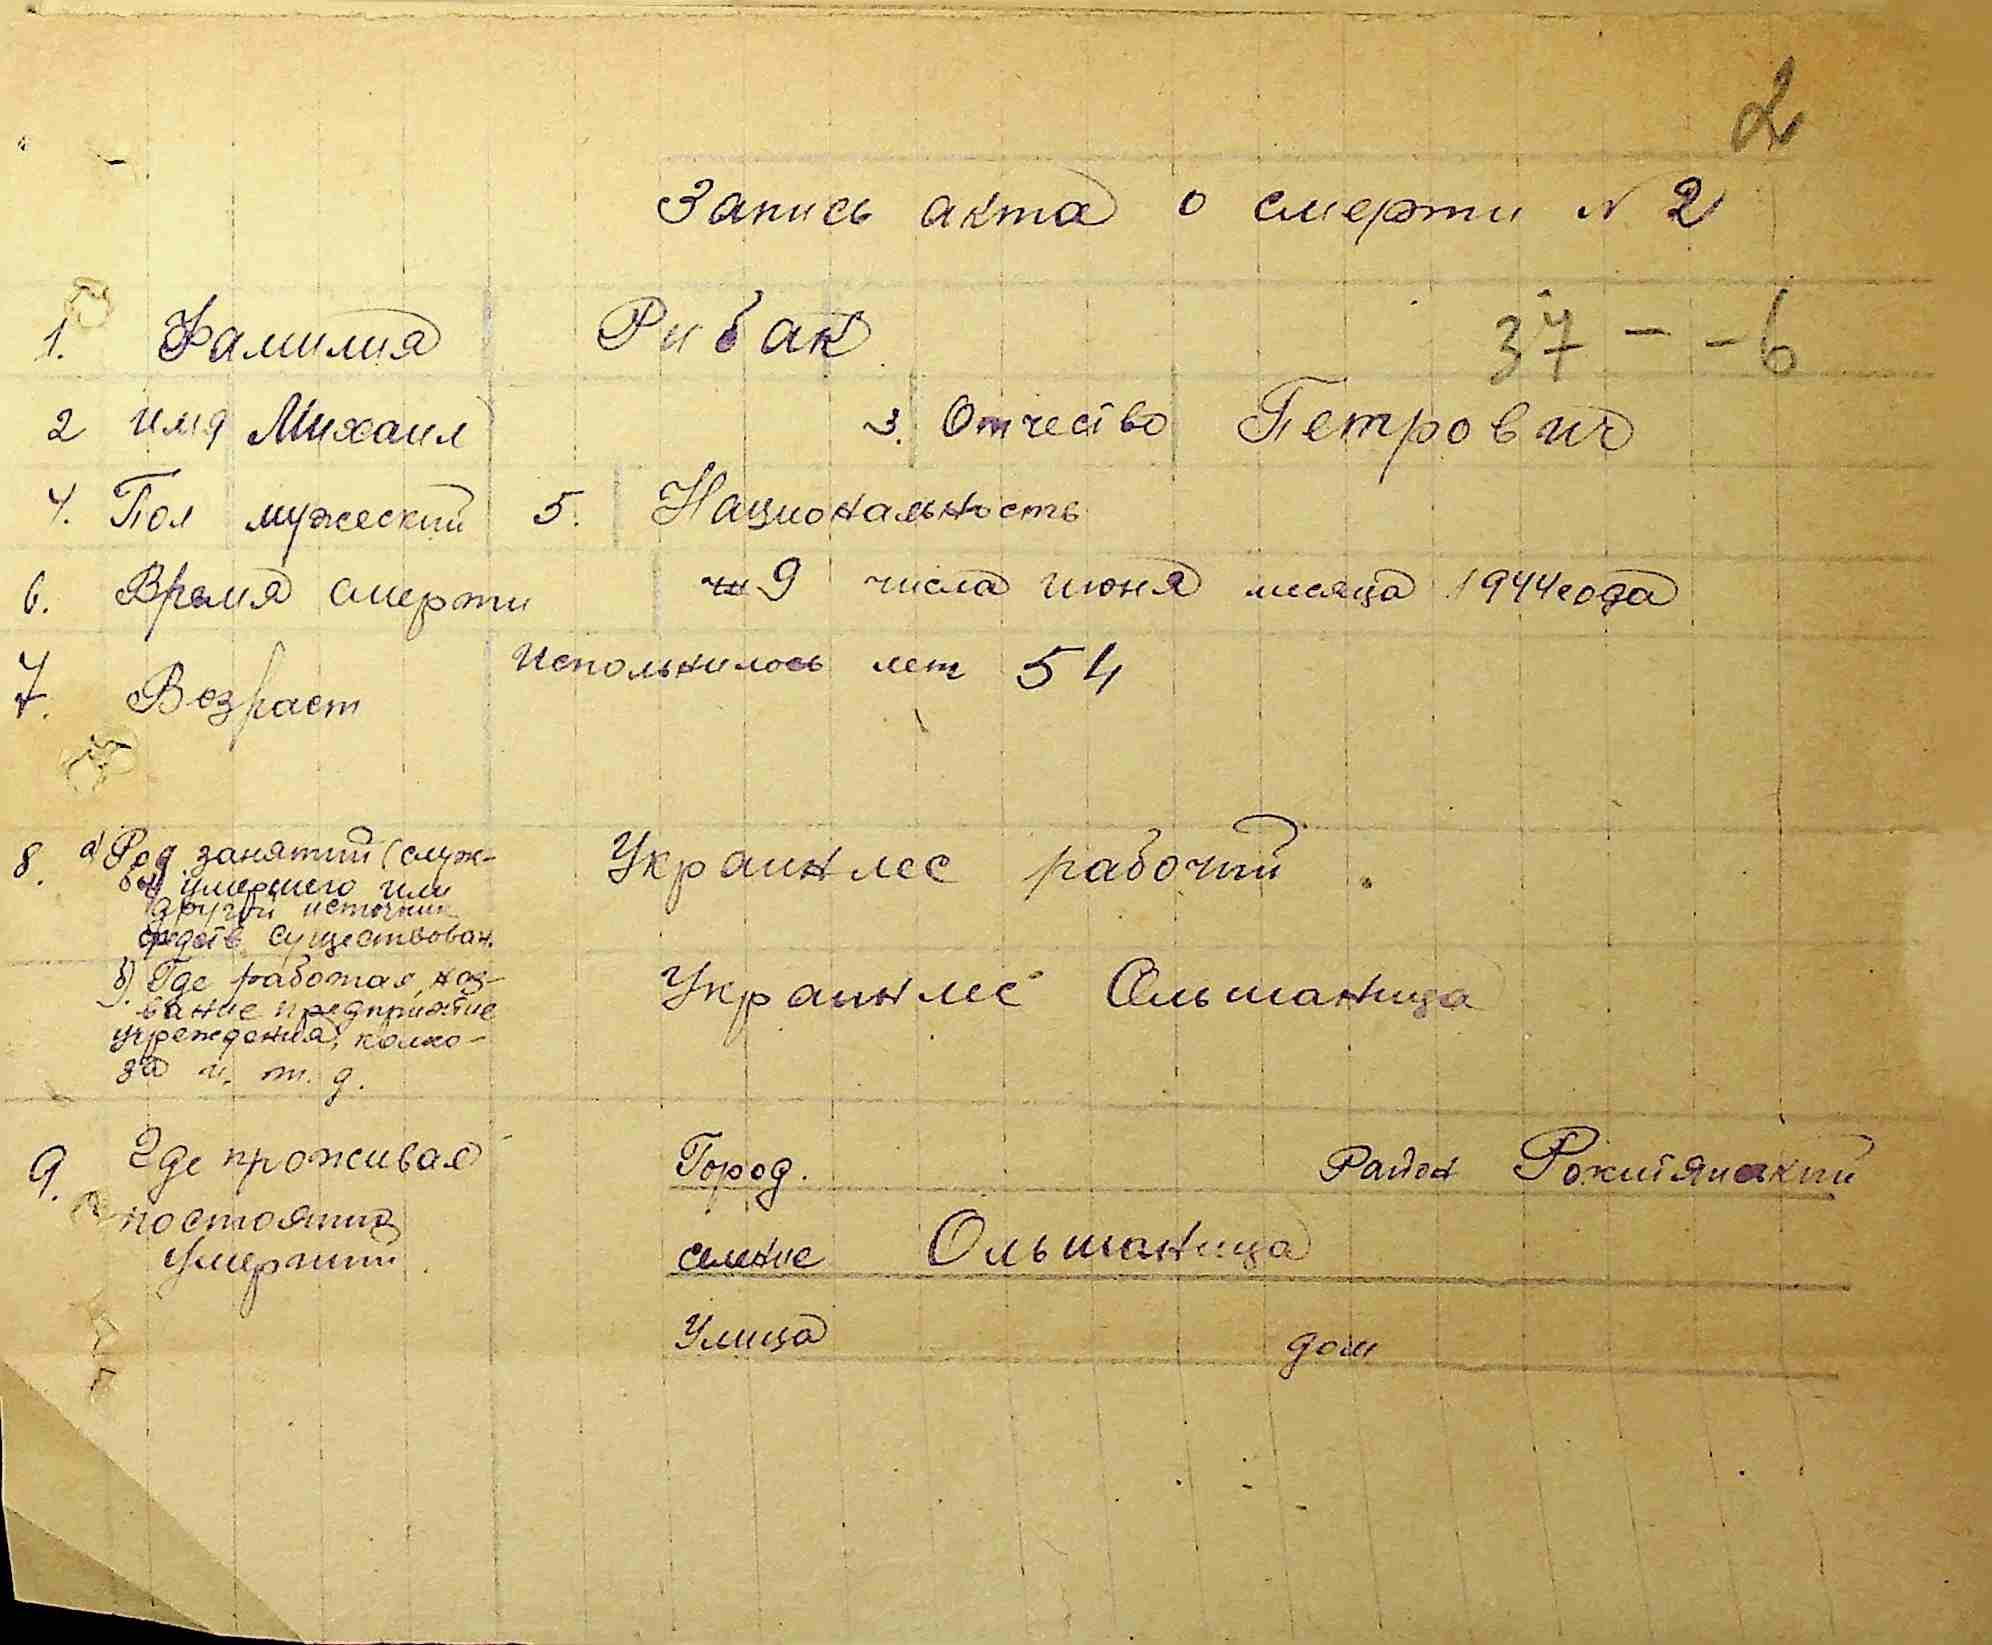 2
Запись акта о смерти № 2
1. Фамилия Рибак 37 - - 6
2 имя Михаил 3. Отчество Петрович
4. Пол мужеский 5. Национальность
6. Время смерти 9 числа июня месяца 1944 года
7. Возраст Испольнилось лет 54
8. а) Род занятий (служ- Украинлес рабочий
бы умершего или
другой источник
средств существован.
б). Где работал, наз- Украинлес Ольшаница
вание предприятие
учреждения, колхо-
за и. т. д.
9. Где проживал Город. Район Рокитянский
постоянно
умерший селение Ольшаница
Улица дом